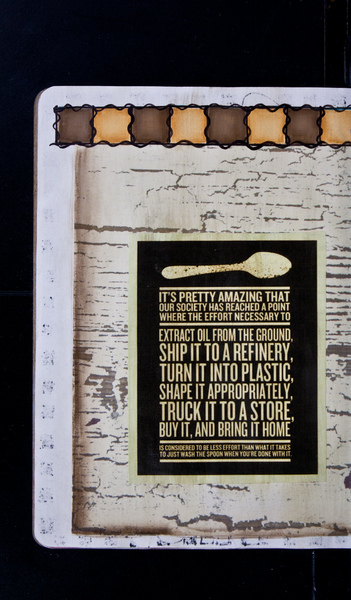 IT'S PRETTY AMAZING THAT
OUR SOCIETY HAS REACHED A POINT
WHERE THE EFFORT NECESSARY TO
EXTRACT OIL FROM THE GROUND,
SHIP IT TO A REFINERY,
TURN IT INTO PLASTIC,
SHAPE IT APPROPRIATELY,
TRUCK IT TO A STORE,
BUY IT, AND BRING IT HOME
IS CONSIDERED TO BE LESS EFFORT THAN WHAT IT TAKES
TO JUST WASH THE SPOON WHEN YOU'RE DONE WITH IT.